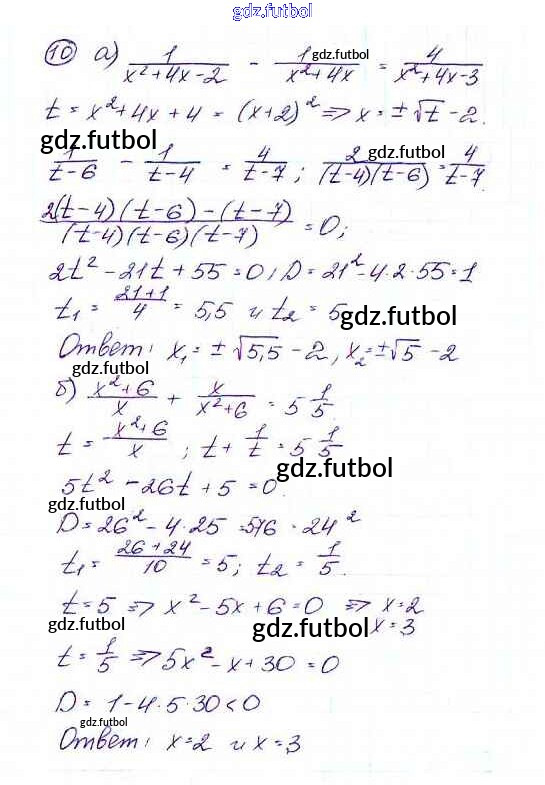 gdz.futbol
10 а) 1/(x²+4x-2) - 1/(x²+4x) = 4/(x²+4x-3)
gdz.futbol
t = x²+4x+4 = (x+2)² => x = ±√t - 2.
gdz.futbol
1/(t-6) - 1/(t-4) = 4/(t-7); 2/((t-4)(t-6)) = 4/(t-7).
gdz.futbol
(2(t-4)(t-6)-(t-7))/((t-4)(t-6)(t-7)) = 0;
2t² - 21t + 55 = 0; D = 21² - 4·2·55 = 1
t₁ = (21+1)/4 = 5,5 и t₂ = 5
gdz.futbol
Ответ: x₁ = ±√5,5 - 2, x₂ = ±√5 - 2
gdz.futbol
б) (x²+6)/x + x/(x²+6) = 5 1/5
t = (x²+6)/x ; t + 1/t = 5 1/5
gdz.futbol
5t² - 26t + 5 = 0.
gdz.futbol
D = 26² - 4·25 = 576 = 24²
t₁ = (26+24)/10 = 5; t₂ = 1/5.
t = 5 => x² - 5x + 6 = 0 => x = 2
gdz.futbol gdz.futbol x = 3
t = 1/5 => 5x² - x + 30 = 0
D = 1 - 4·5·30 < 0
gdz.futbol
Ответ: x = 2 и x = 3